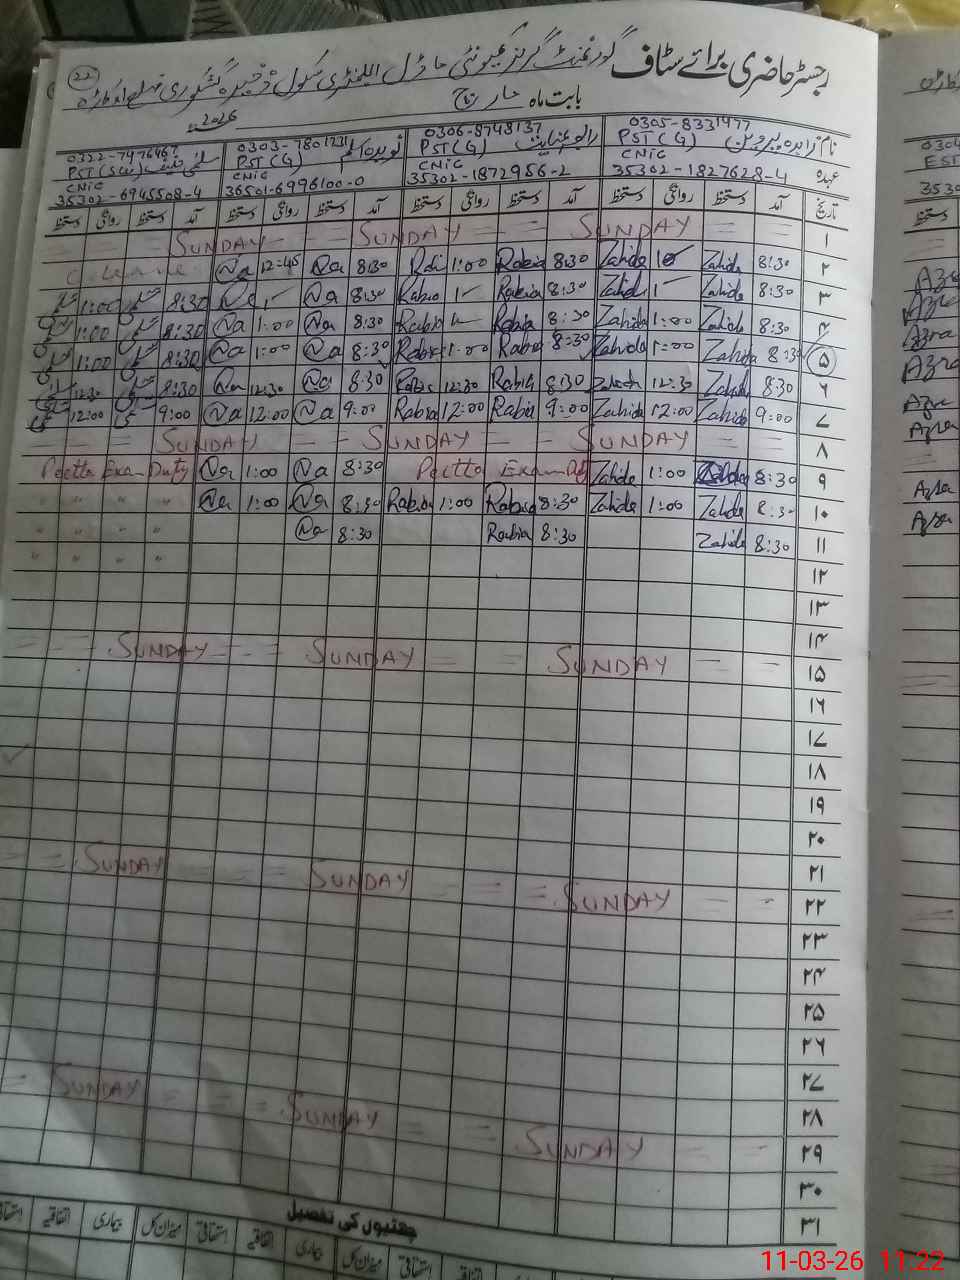 رجسٹر حاضری برائے سٹاف گورنمنٹ گرلز کمیونٹی ماڈل ایلیمنٹری سکول
22
بابت ماہ مارچ 2026
نام زاہدہ پروین 0305-8331477 رابعہ عنایت 0306-8748137 نویدہ اسلم 0303-7801231 سلمیٰ حنیف 0322-7976467
عہدہ PST(G) PST(G) PST(G)
CNIC 35302-1827628-4 CNIC 35302-1872956-2 CNIC 36501-6996100-0 CNIC 35302-6945508-4
تاریخ آمد دستخط روانگی دستخط آمد دستخط روانگی دستخط آمد دستخط روانگی دستخط آمد دستخط روانگی دستخط
۱ SUNDAY SUNDAY SUNDAY
۲ 8:30 Zahida Zahida 8:30 Rabia 1:00 8:30 Na 12:45 Na
۳ 8:30 Zahida Zahid 8:30 Rabia Rabia 8:30 Na Na 8:30 1:00
۴ 8:30 Zahida 1:00 Zahida 8:30 Rabia Rabia 8:30 Na 1:00 Na 8:30 1:00
۵ 8:30 Zahida 1:00 Zahida 8:30 Rabia 1:00 Rabia 8:30 Na 1:00 Na 8:30 1:00
۶ 8:30 Zahida 12:30 8:30 Rabia 12:30 Rabia 8:30 Na 12:30 Na 8:30 12:30
۷ 9:00 Zahida 12:00 Zahida 9:00 Rabia 12:00 Rabia 9:00 Na 12:00 Na 9:00 12:00
۸ SUNDAY SUNDAY SUNDAY
۹ 8:30 Zahida 1:00 Zahida Exam 8:30 Na 1:00 Na Exam Duty
۱۰ 8:30 Zahida 1:00 Zahida 8:30 Rabia 1:00 Rabia 8:30 Na 1:00 Na " " "
۱۱ 8:30 Zahida 8:30 Rabia 8:30 Na " " "
۱۲
۱۳
۱۴
۱۵ SUNDAY SUNDAY SUNDAY
۱۶
۱۷
۱۸
۱۹
۲۰
۲۱
۲۲ SUNDAY SUNDAY SUNDAY
۲۳
۲۴
۲۵
۲۶
۲۷
۲۸
۲۹ SUNDAY SUNDAY SUNDAY
۳۰
۳۱
چھٹیوں کی تفصیل
استحقاقی میزان کل بیماری اتفاقیہ استحقاقی میزان کل بیماری اتفاقیہ
EST
3530
Azra
Azra
Azra
Azra
Azra
Azra
Azra
11-03-26 11:22